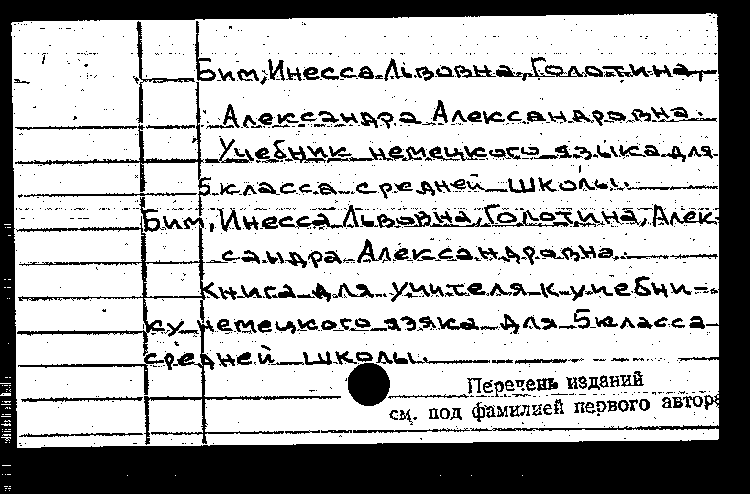 Бим, Инесса Львовна, Голотина,
Александра Александровна.
Учебник немецкого языка для
5 класса средней школы.
Бим, Инесса Львовна, Голотина, Алек-
сандра Александровна.
Книга для учителя к учебни-
ку немецкого язяка для 5 класса
средней школы.
Перечень изданий
см. под фамилией первого автора